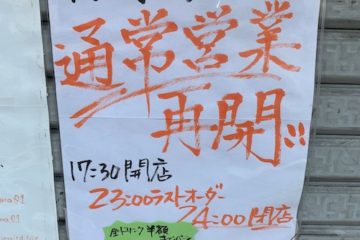 通常営業
再開!!
17:30開店
23:00ラストオーダー
24:00閉店
全ドリンク半額